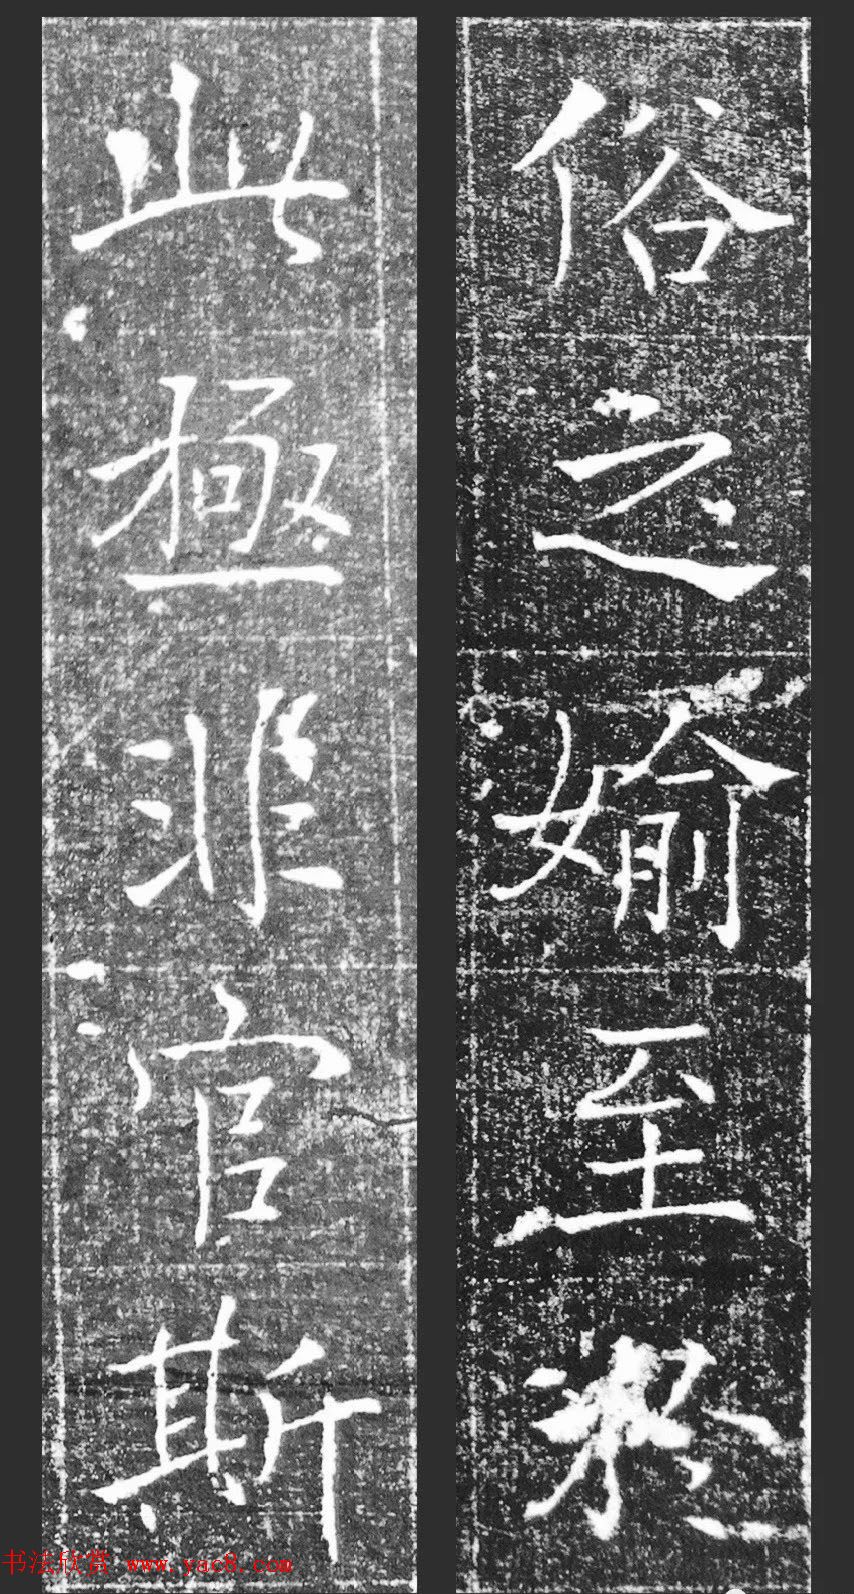 俗之媮至於
此極非官斯
书法欣赏 www.yac8.com